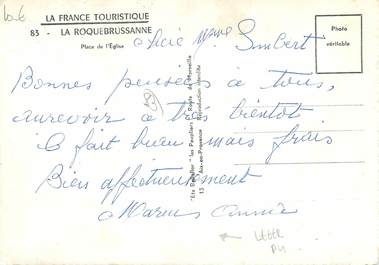 LA FRANCE TOURISTIQUE
83 - LA ROQUEBRUSSANNE
Place de l'Église
Photo
véritable
Mme Imbert
Bonnes pensées à tous,
aurevoir à très bientôt
il fait beau mais frais
Bien affectueusement
Marius Annie
"Les Peupliers"
13 Aix-en-Provence
Reproduction interdite